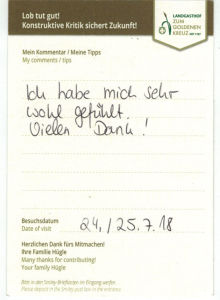 Lob tut gut!
Konstruktive Kritik sichert Zukunft!
LANDGASTHOF
ZUM
GOLDENEN
KREUZ
Mein Kommentar / Meine Tipps
My comments / tips
Ich habe mich sehr
wohl gefühlt.
Vielen Dank!
Besuchsdatum
Date of visit
24./25.7.18
Herzlichen Dank fürs Mitmachen!
Ihre Familie Hügle
Many thanks for contributing!
Your family Hügle
Bitte in den Smiley-Briefkasten im Eingang werfen.
Please deposit in the Smiley post box in the entrance.